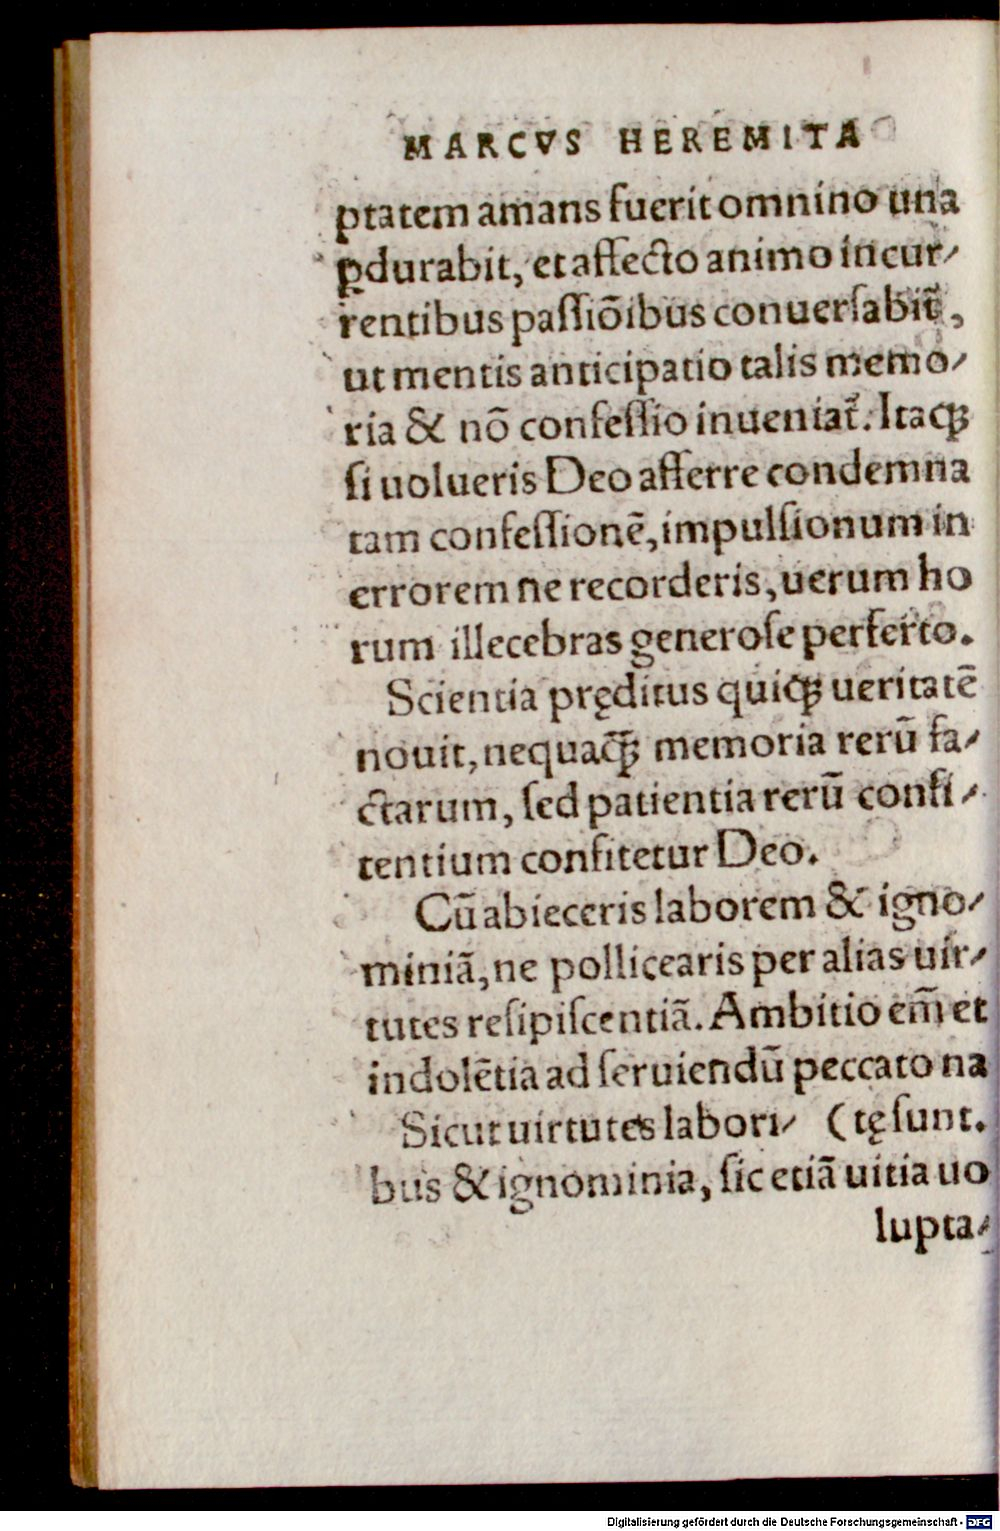 MARCVS HEREMITA
ptatem amans fuerit omnino una
ꝑdurabit, et affecto animo incur⸗
rentibus paſſiōibus conuerſabit᷑,
ut mentis anticipatio talis memo⸗
ria & nō confeſſio inueniat᷑. Itaqꝫ
ſi uolueris Deo afferre condemna
tam confeſſionē, impulſionum in
errorem ne recorderis, uerum ho
rum illecebras generoſe perferto.
Scientia prę̨ditus quiqꝫ ueritatē
nouit, nequaq̄ꝫ memoria rerū fa⸗
ctarum, ſed patientia rerū confi⸗
tentium confitetur Deo.
Cū abieceris laborem & igno⸗
miniā, ne pollicearis per alias uir⸗
tutes reſipiſcentiā. Ambitio em̄ et
indolētia ad ſeruiendū peccato na
Sicut uirtutes labori⸗ (tę ſunt.
bus & ignominia, ſic etiā uitia uo
lupta⸗
Digitalisierung gefördert durch die Deutsche Forschungsgemeinschaft - DFG